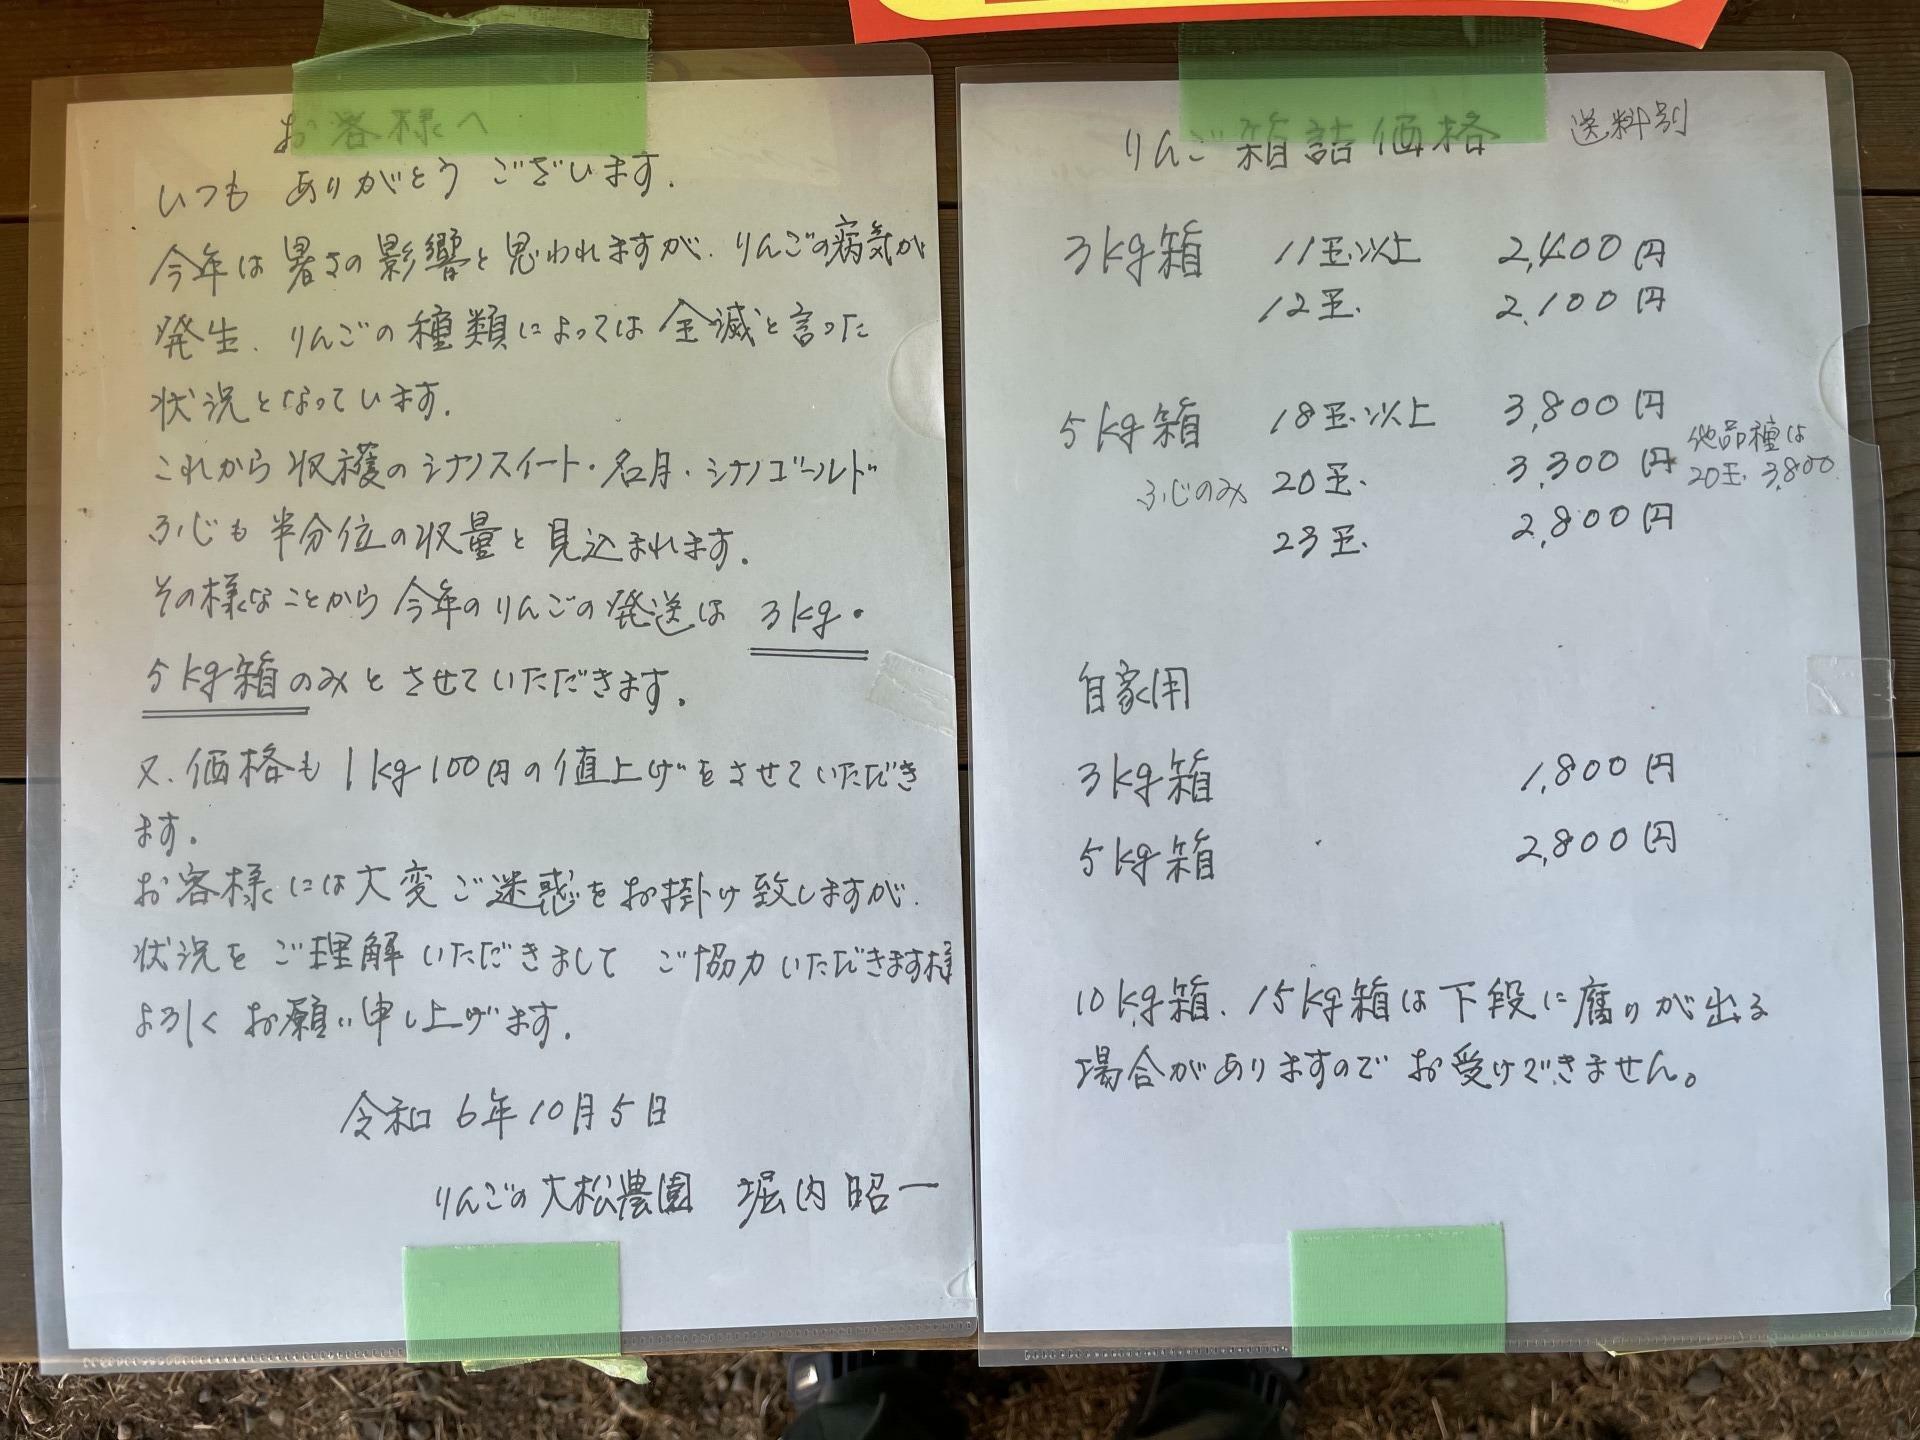 お客様へ
いつも ありがとう ございます.
今年は暑さの影響と思われますが、りんごの病気が
発生、りんごの種類によっては全滅と言った
状況となっています.
これから収穫のシナノスイート・名月・シナノゴールド
ふじも半分位の収量と見込まれます.
その様なことから今年のりんごの発送は 3kg・
5kg箱のみとさせていただきます.
又、価格も1kg100円の値上げをさせていただき
ます。
お客様には大変ご迷惑をお掛け致しますが、
状況をご理解いただきまして ご協力いただきます様
よろしくお願い申し上げます.
令和6年10月5日
りんごの大松農園 堀内昭一
りんご箱詰価格 送料別
3kg箱 11玉以上 2,400円
12玉 2,100円
5kg箱 18玉以上 3,800円
ふじのみ 20玉 3,300円 他品種は
20玉 3,800
23玉 2,800円
自家用
3kg箱 1,800円
5kg箱 2,800円
10kg箱、15kg箱は下段に腐りが出る
場合がありますのでお受けできません。